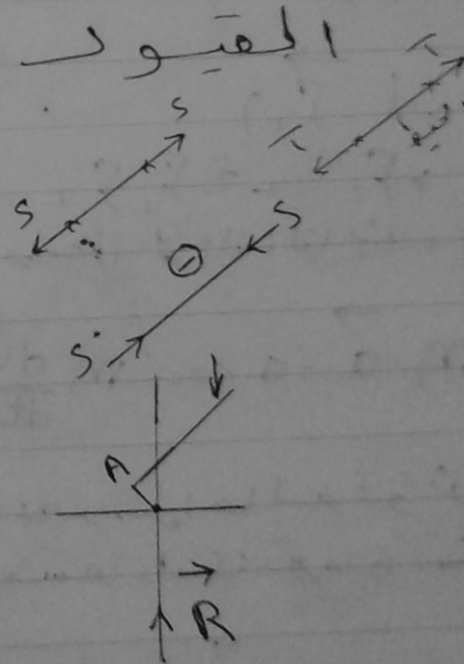 القيود
S
S
S
S
A
R